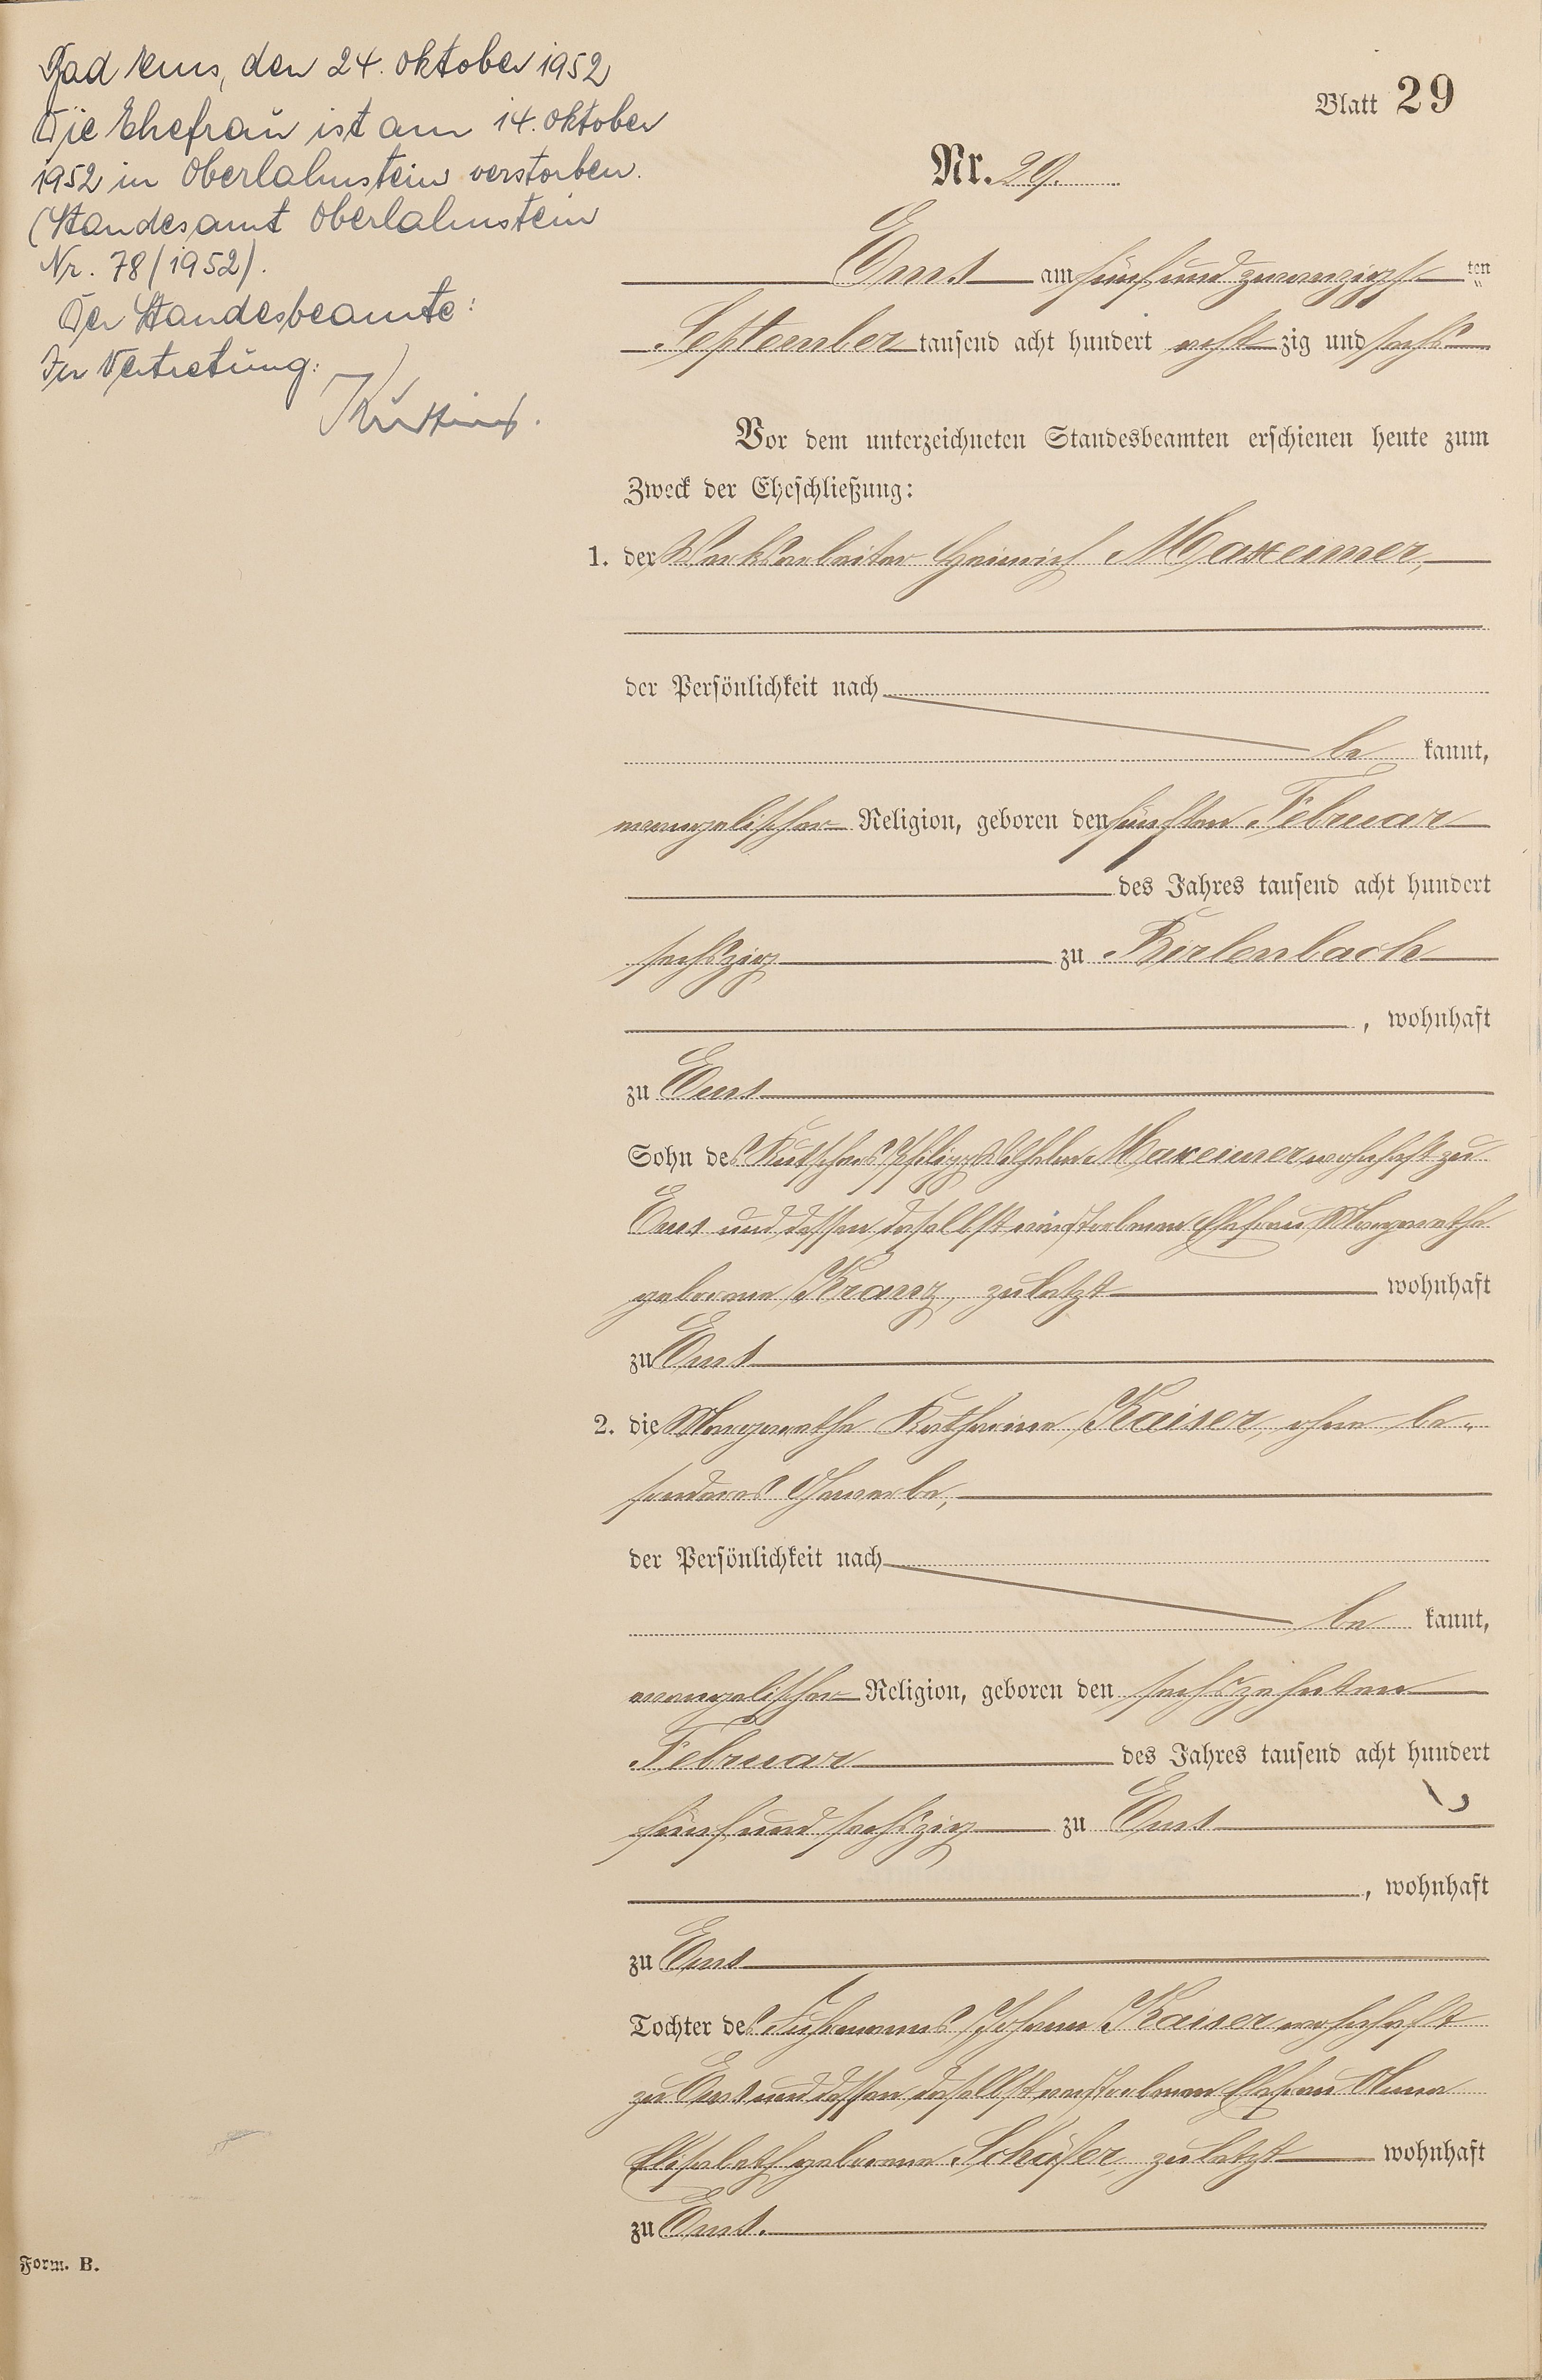 Bad Ems, den 24. Oktober 1952
Die Ehefrau ist am 14. Oktober
1952 in Oberlahnstein verstorben.
(Standesamt Oberlahnstein
Nr. 78/1952).
Der Standesbeamte:
In Vertretung:
Blatt 29
Nr. 29.
Ems am fünf und zwanzigsten
September tausend acht hundert achtzig und sechs
Vor dem unterzeichneten Standesbeamten erschienen heute zum
Zweck der Eheschließung:
1. der Werksarbeiter Heinrich Maxeimer,
der Persönlichkeit nach
be kannt,
evangelischer Religion, geboren den fünften Februar
des Jahres tausend acht hundert
sechszig zu Birlenbach
, wohnhaft
zu Ems
Sohn des Kutschers Philipp Wilhelm Maxeimer wohnhaft zu
Ems und dessen daselbst verstorbenen Ehefrau Margarethe
geborene Kranz, zuletzt wohnhaft
zu Ems
2. die Margarethe Katharine Kaiser, ohne be-
sonderes Gewerbe,
der Persönlichkeit nach
be kannt,
evangelischer Religion, geboren den sechszehnten
Februar des Jahres tausend acht hundert
fünf und sechszig zu Ems
, wohnhaft
zu Ems
Tochter des Fuhrmanns Johann Kaiser wohnhaft
zu Ems und dessen daselbst verstorbenen Ehefrau Anna
Elisabeth geborene Schäfer, zuletzt wohnhaft
zu Ems.
Form. B.